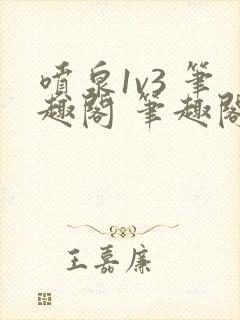 噴泉1v3 筆
趣閣 筆趣閣
王嘉廉